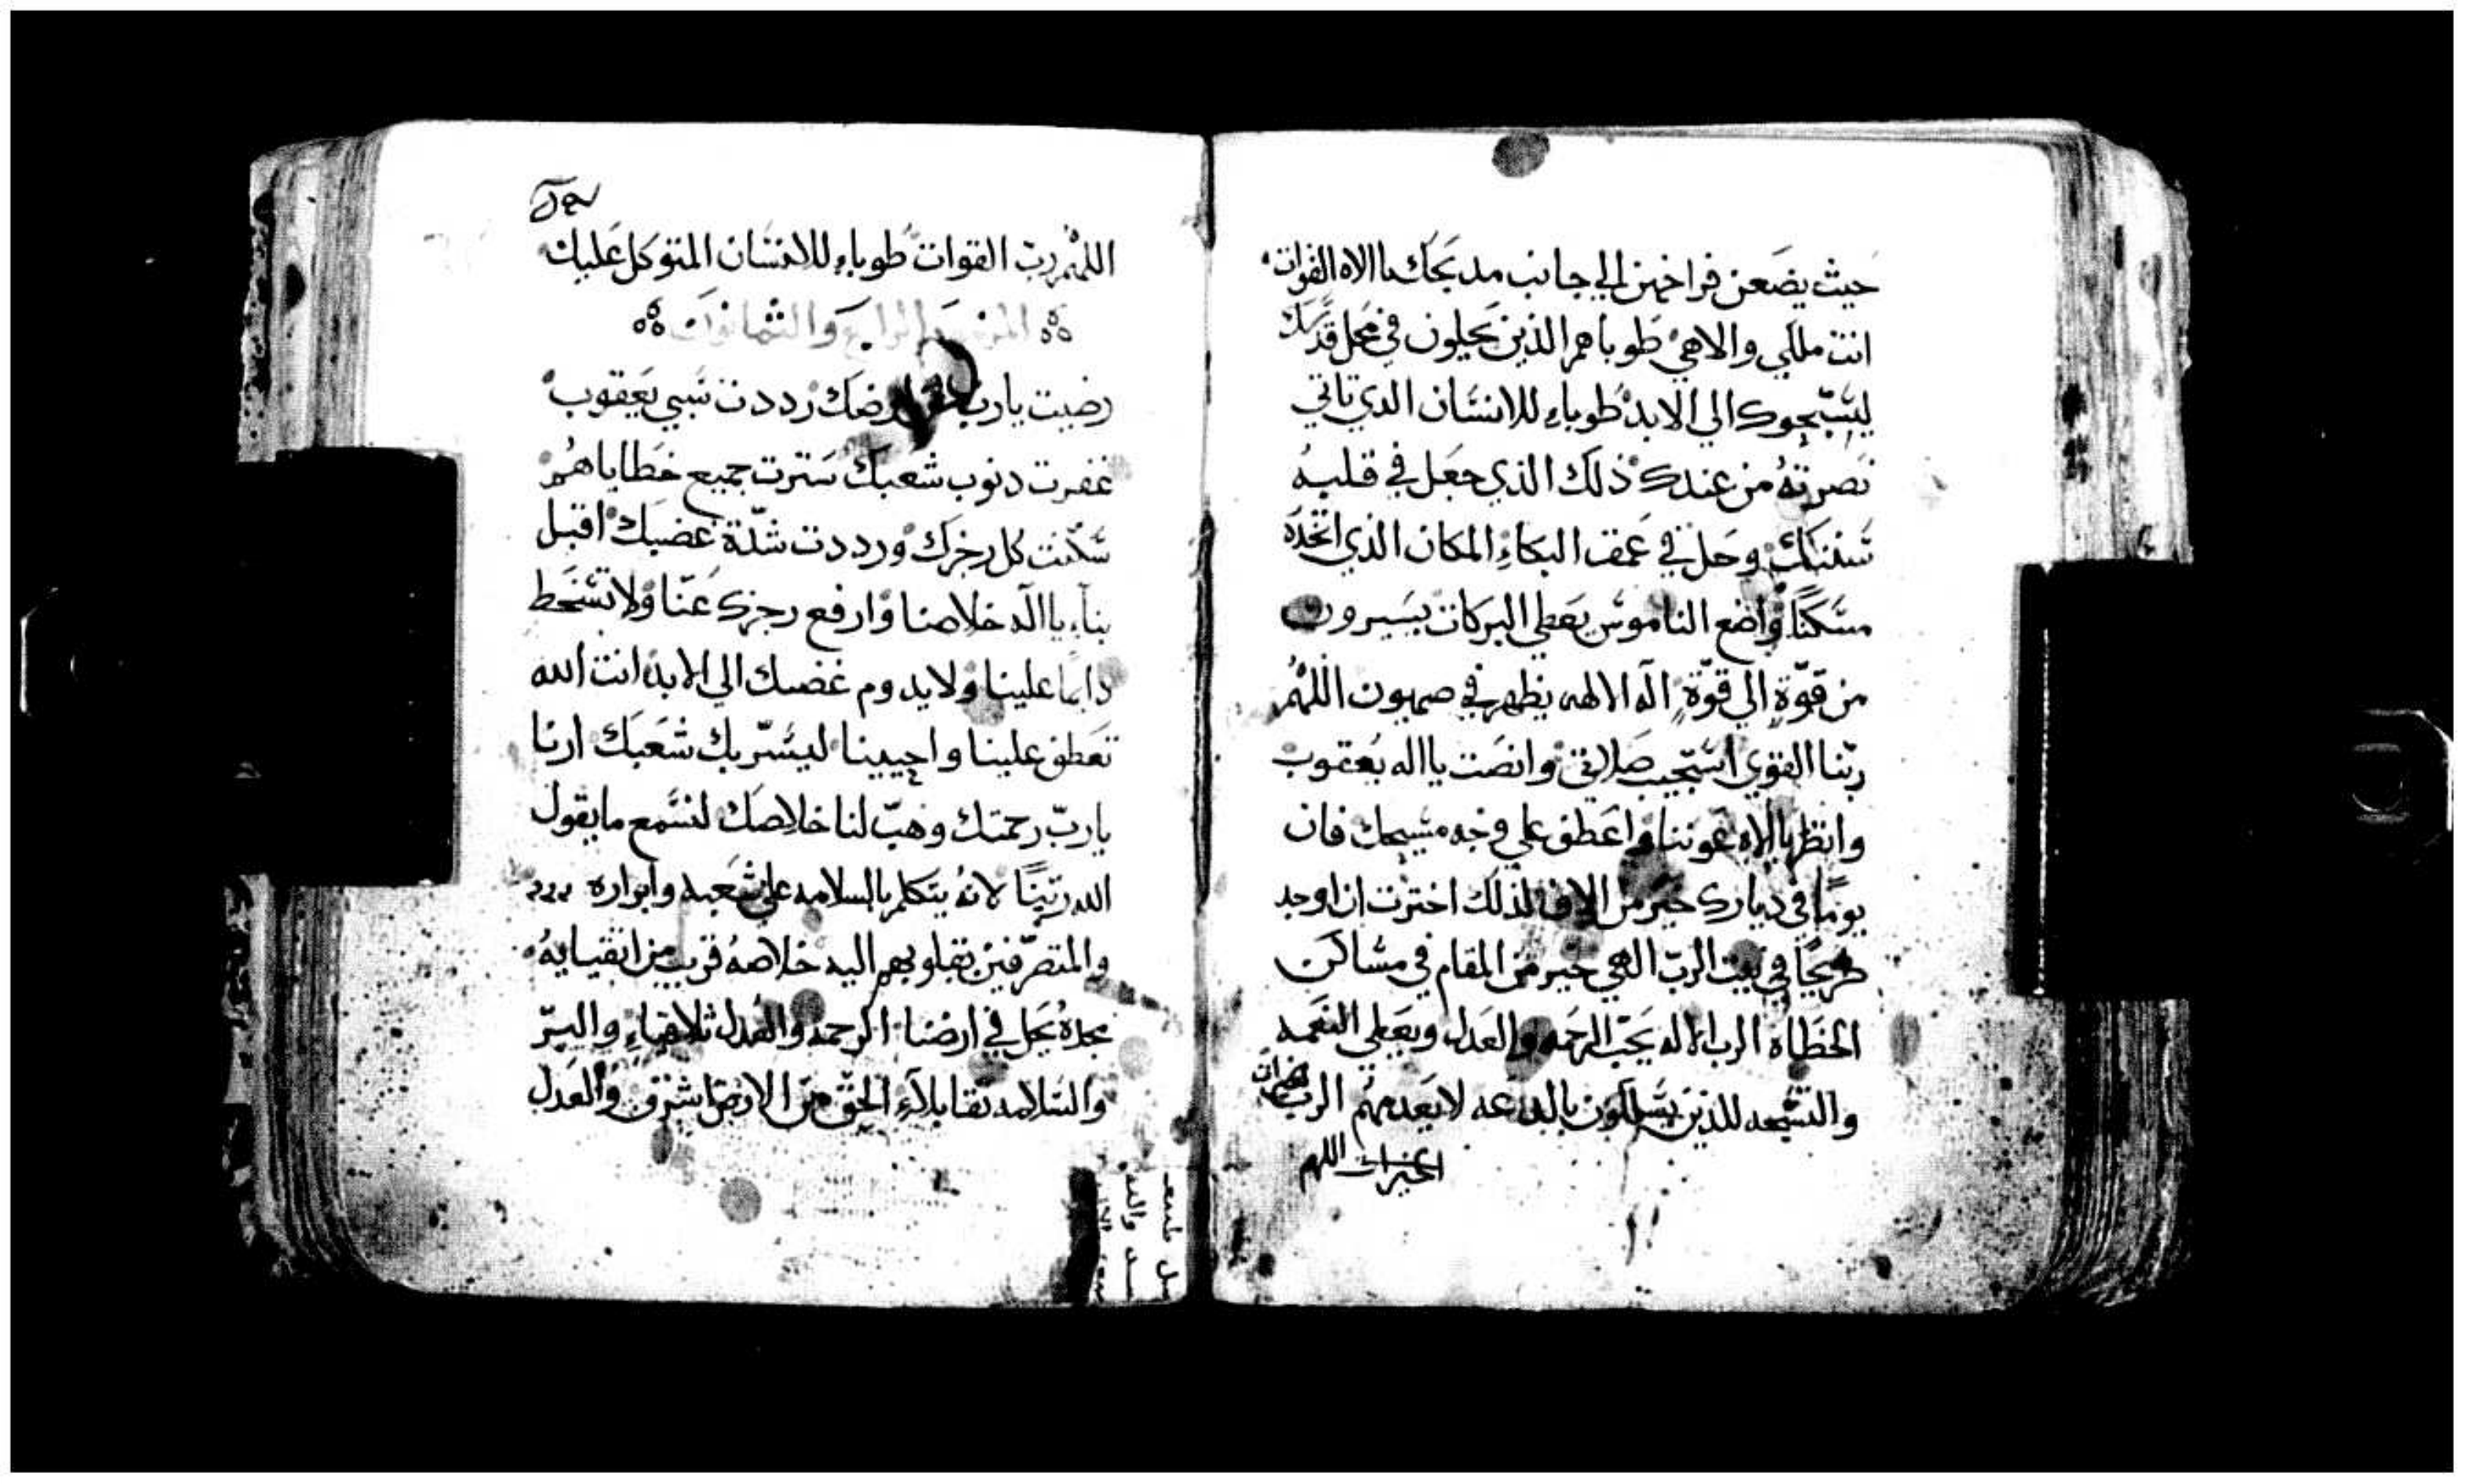 حيث يضعن فراخهن الي جانب مدبحك ياالاه القوات
انت ملكي والاهي طوباهم الذين يحلون في محل قدسك
ليسبحوك الي الابد طوباء للانسان الدي تاتي
نصرته من عندك ذلك الذي جعل في قلبه
سننك وحل في عمق البكاء المكان الذي اتخده
مسكنًا واضع الناموس يعطي البركات يسيرون
من قوّة الي قوّة اله الالهه يظهر في صهيون اللهم
ربّنا القوي استجيب صلاتي وانصت يااله يعقوب
وانظر ياالاه عوننا واعطف علي وجه مسيحك فان
يومًا في ديارك خير من الاف لذلك اخترت ان اوجد
طريحًا في بيت الربّ الهي خير من المقام في مساكن
الخطاة الرب الاله يحب الرحمه والعدل ويعطي النعمه
والنسمه للذين يسلكون بالدعه لايعدمهم الرب
الخيرات اللهم
اللهم ربّ القوات طوباء للانسان المتوكل عليك
المزمور الرابع والثمانون
رضيت يارب عن ارضك رددت سبي يعقوب
غفرت دنوب شعبك سترت جميع خطاياهم
سكّنت كل رجزك ورددت شدّة غضبك اقبل
بنا ياالَه خلاصنا وارفع رجزك عنّا ولا تسخط
دايما علينا ولا يدوم غضبك الي الابد انت الله
تعطف علينا واحيينا ليسّر بك شعبك ارنا
ياربّ رحمتك وهبّ لنا خلاصك لنسمع مايقول
الله ربنا لانه يتكلم بالسلامه علي شعبه وابراره
والمتصرّفين بقلوبهم اليه خلاصه قريب من اتقيايه
مجده يحل في ارضنا الرحمه والعدل تلاقياء والبرّ
والسلامه تقابلاء الحق من الارض اشرق والعدل